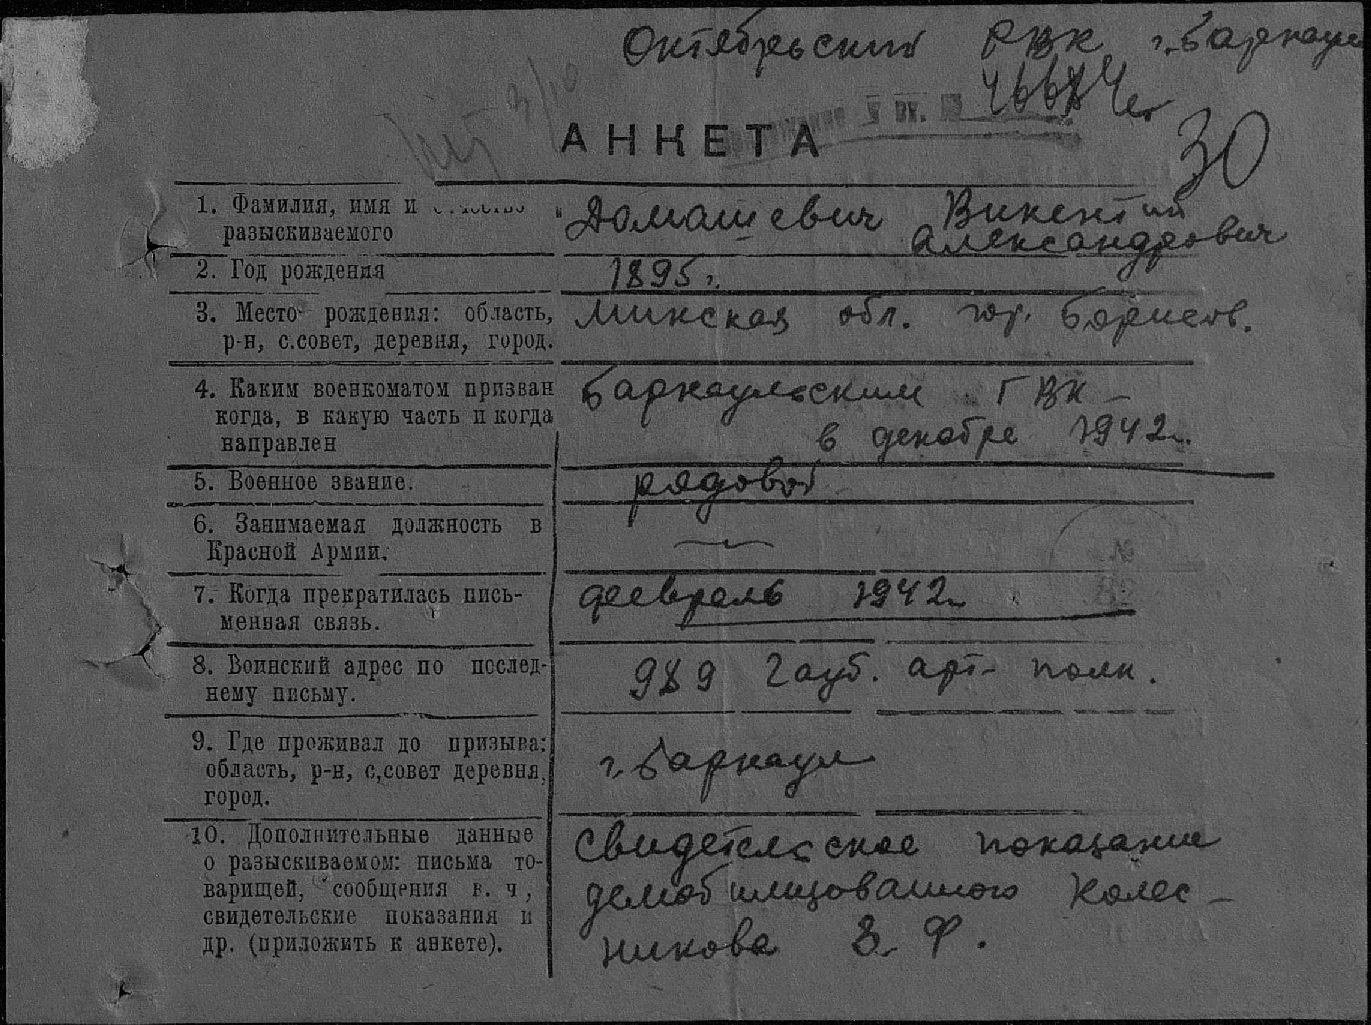 Октябрьский РВК г. Барнаул
46684 с.
АНКЕТА
30
1. Фамилия, имя и отчество
разыскиваемого
Домашевич Викентий
Александрович
2. Год рождения
1895 г.
3. Место рождения: область,
р-н, с.совет, деревня, город.
Минская обл. гор. Борисов.
4. Каким военкоматом призван
когда, в какую часть и когда
направлен
Барнаульским ГВК -
в декабре 1942 г.
5. Военное звание.
рядовой
6. Занимаемая должность в
Красной Армии.
7. Когда прекратилась пись-
менная связь.
февраль 1942 г.
8. Воинский адрес по послед-
нему письму.
989 Гауб. арт- полк.
9. Где проживал до призыва:
область, р-н, с,совет деревня,
город.
г. Барнаул
10. Дополнительные данные
о разыскиваемом: письма то-
варищей, сообщения в. ч,
свидетельские показания и
др. (приложить к анкете).
Свидетельское показание
демобилизованного Колес-
никова З. Ф.